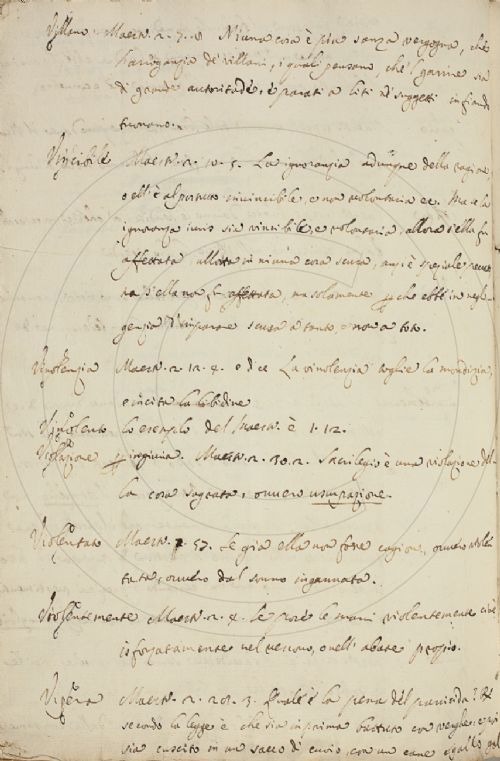 Villano Maestr. 2. 7. 8 Niuna cosa è più sanza vergogna, che
l'arrogangia de' villani, i quali pensano, che'l garrire sia
di grande autoritade, e parati a liti a' suggetti infianda
tuonano.
Vincibile Maestr. 2. 10. 5. La ignoranzia adunque della ragione,
o ell'è al postutto invincibile, e non volontaria ec. Ma se la
ignoranza iuris sia vincibile, e volontaria, allora s'ella fu
affettata allotta in niuna cosa scusa, anzi è speziale
ma s'ella non fu affettata, ma solamente che ebbe in negli
genzia d'imparare scusa a tanto, e non a toto.
Vinolenzia Maestr. 2. 12. 4. e dice La vinolenzia toglie la mondizia,
e incita la libidine
Vinolento lo esemplo del Maestr. è 1. 12.
Violazione ingiuria. Maestr. 2. 30. 2. Sacrilegio è una violazione del
la cosa sagrata, ovvero usurpazione.
Violentato Maestr. 57. Se già ella non fosse cagione, ovvero violen
tata, ovvero dal sonno ingannata.
Violentemente Maestr. 2. 4. le pose le mani violentemente cioè
isforzatamente nel vescovo, o nell'abate propio.
Vipera Maestr. 2. 28. 3. Quale è la pena del parricida? R.
secondo la legge è che sia in prima battuto con verghe, e poi
sia cuscito in un sacco di cuoio, con un cane e gallo